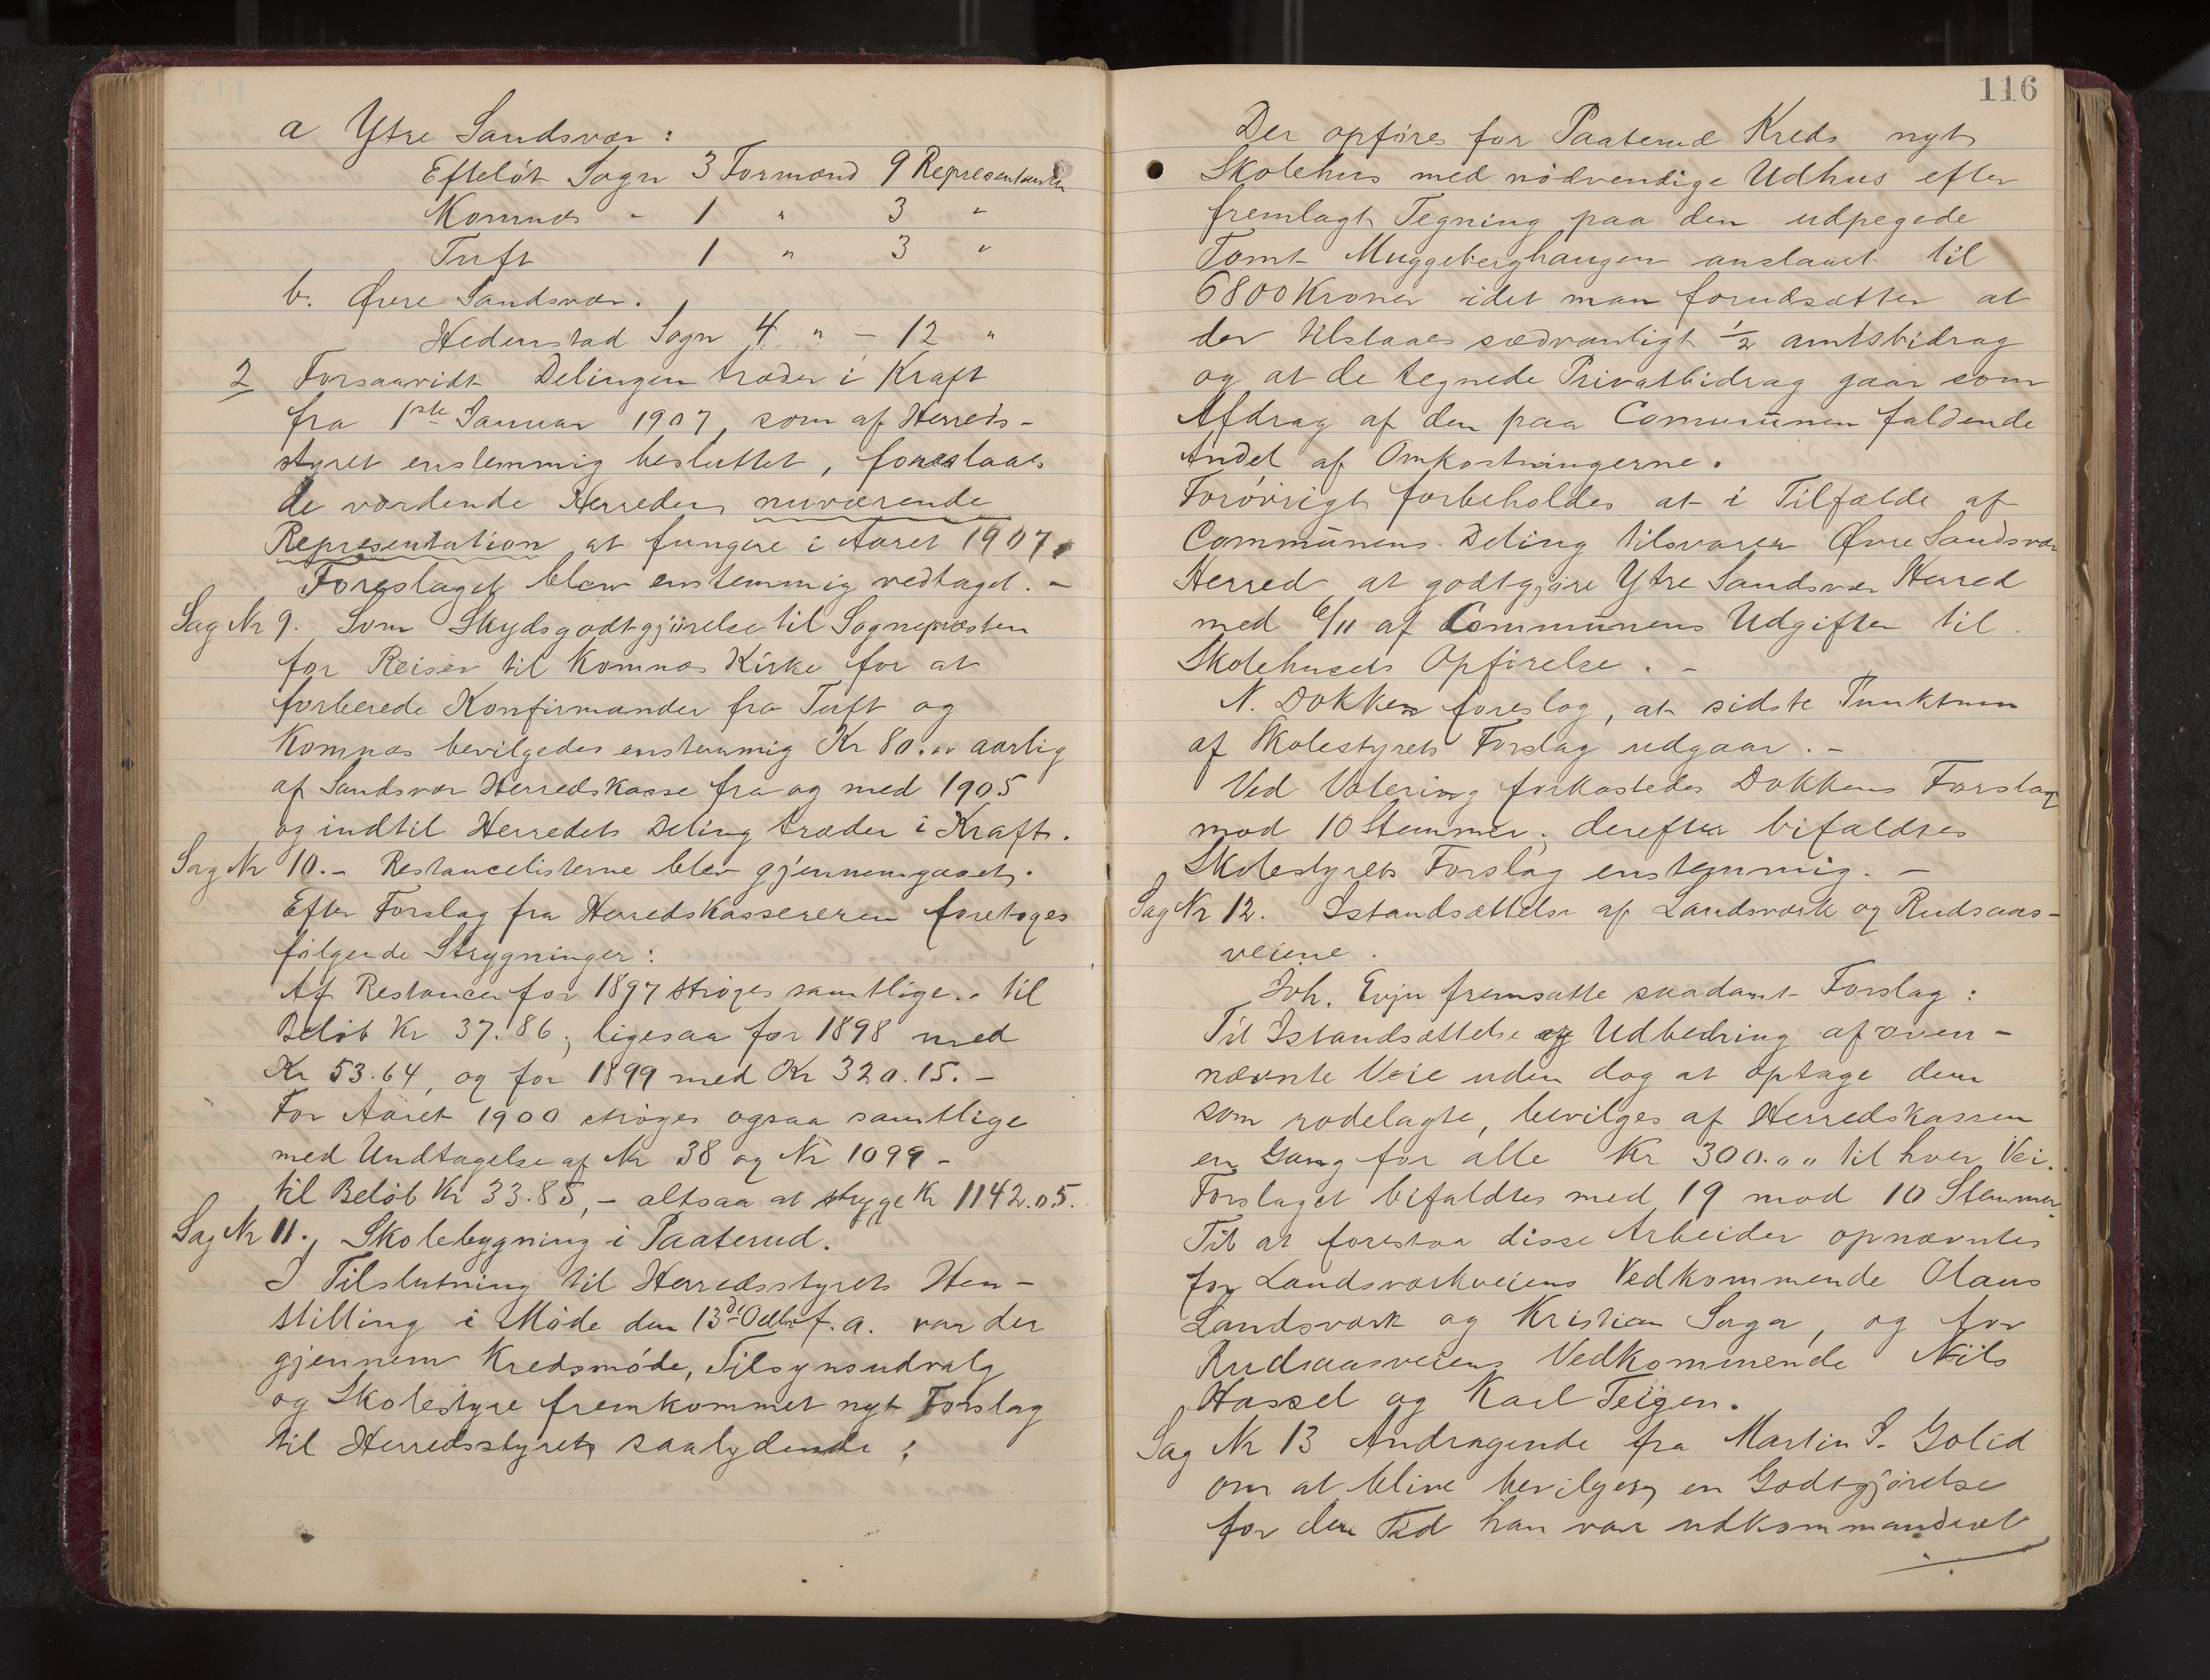 a Ytre Sandsvær:
Efteløt Sogn 3 Formænd 9 Representanter
Komnæs " 1 " 3 "
Tuft 1 " 3 "
b. Øvre Sandsvær.
Hedenstad Sogn 4 " – 12 "
2 Forsaavidt Delingen træder i Kraft
fra 1ste Januar 1907, som af Herreds-
styret enstemmig besluttet, foreslaaes
de vordende Herreders nuværende
Representation at fungere i Aaret 1907.
Foreslaget blev enstemmig vedtaget. –
Sag Nr 9. Som Skydsgodtgjørelse til Sognepræsten
for Reiser til Komnæs Kirke for at
forberede Konfirmander fra Tuft og
Komnæs bevilgedes enstemmig Kr 80.00 aarlig
af Sandsvær Herredskasse fra og med 1905
og indtil Herredets Deling træder i Kraft.
Sag Nr 10.– Restancelisterne blev gjennemgaaet.
Efter Forslag fra Herredskassereren foretoges
følgende Strygninger:
Af Restancer for 1897 strøges samtlige.. til
Beløb Kr 37.86; ligesaa for 1898 med
Kr 53.64, og for 1899 med Kr 320.15. –
For Aaret 1900 strøges ogsaa samtlige
med Undtagelse af Nr 38 og Nr 1099 –
til Beløb Kr 33.85, – altsaa at stryge Kr 1142.05.
Sag Nr 11., Skolebygning i Paaterud.
I Tilslutning til Herredsstyrets Hen-
stilling i Møde den 13de Octbr f.a. var der
gjennem Kredsmøde, Tilsynsudvalg
og Skolestyre fremkommet nyt Forslag
til Herredsstyret, saalydende:
116
Der opføres for Paaterud Kreds nyt
Skolehus med nødvendige Udhus efter
fremlagt Tegning paa den udpegede
Tomt Muggeberghaugen anslaaet til
6800 Kroner idet man forudsætter at
der tilstaaes sædvanligt ½ amtsbidrag
og at de tegnede Privatbidrag gaar som
Afdrag af den paa Communen faldende
Andel af Omkostningerne.
Forøvrigt forbeholdes at i Tilfælde af
Communens Deling tilsvarer Øvre Sandsvær
Herred at godtgjøre Ytre Sandsvær Herred
med 6/11 af Communens Udgifter til
Skolehusets Opførelse. –
N. Dokken foreslog, at sidste Punktum
af Skolestyrets Forslag udgaar. –
Ved Votering forkastedes Dokkens Forslag
mod 10 Stemmer; derefter bifaldtes
Skolestyrets Forslag enstemmig. –
Sag Nr 12. Istandsættelse af Landsværk og Rudsaas-
veiene.
Joh. Evju fremsatte saadant Forslag:
Til Istandsættelse og Udbedring af oven-
nævnte Veie uden dog at optage dem
som rodelagte, bevilges af Herredskassen
en Gang for alle Kr 300.00 til hver Vei.
Forslaget bifaldtes med 19 mod 10 Stemmer.
Til at forestaa disse Arbeider opnævntes
for Landsværkveiens Vedkommende Olaus
Landsværk og Kristian Saga, og for
Rudsaasveiens Vedkommende Nils
Hassel og Karl Teigen.
Sag Nr 13 Andragende fra Martin S. Golid
om at blive bevilget en Godtgjørelse
for den Tid han var udkommanderet